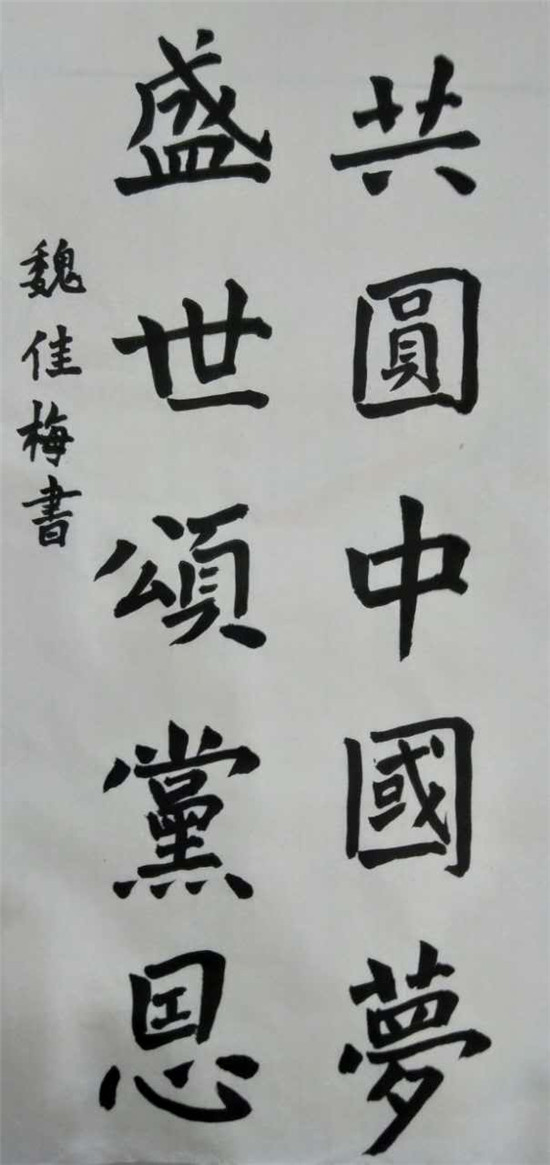 共圓中國夢
盛世頌黨恩
魏佳梅書